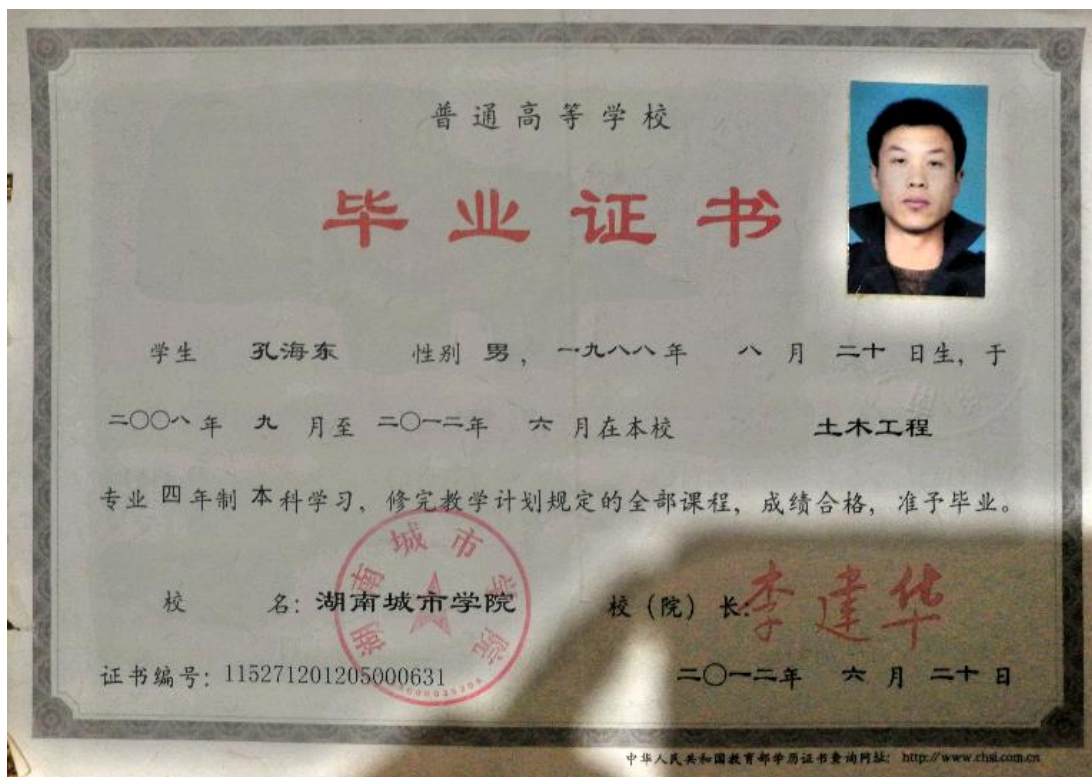 普通高等学校
毕业证书
学生 孔海东 性别 男，一九八八年 八 月 二十 日生，于
二〇〇八年 九 月至 二〇一二年 六 月在本校 土木工程
专业 四 年制 本 科学习，修完教学计划规定的全部课程，成绩合格，准予毕业。
湖南城市学院
校 名：湖南城市学院 校（院）长：李建华
证书编号：115271201205000631 二〇一二年 六 月 二十 日
中华人民共和国教育部学历证书查询网址：http://www.chsi.com.cn